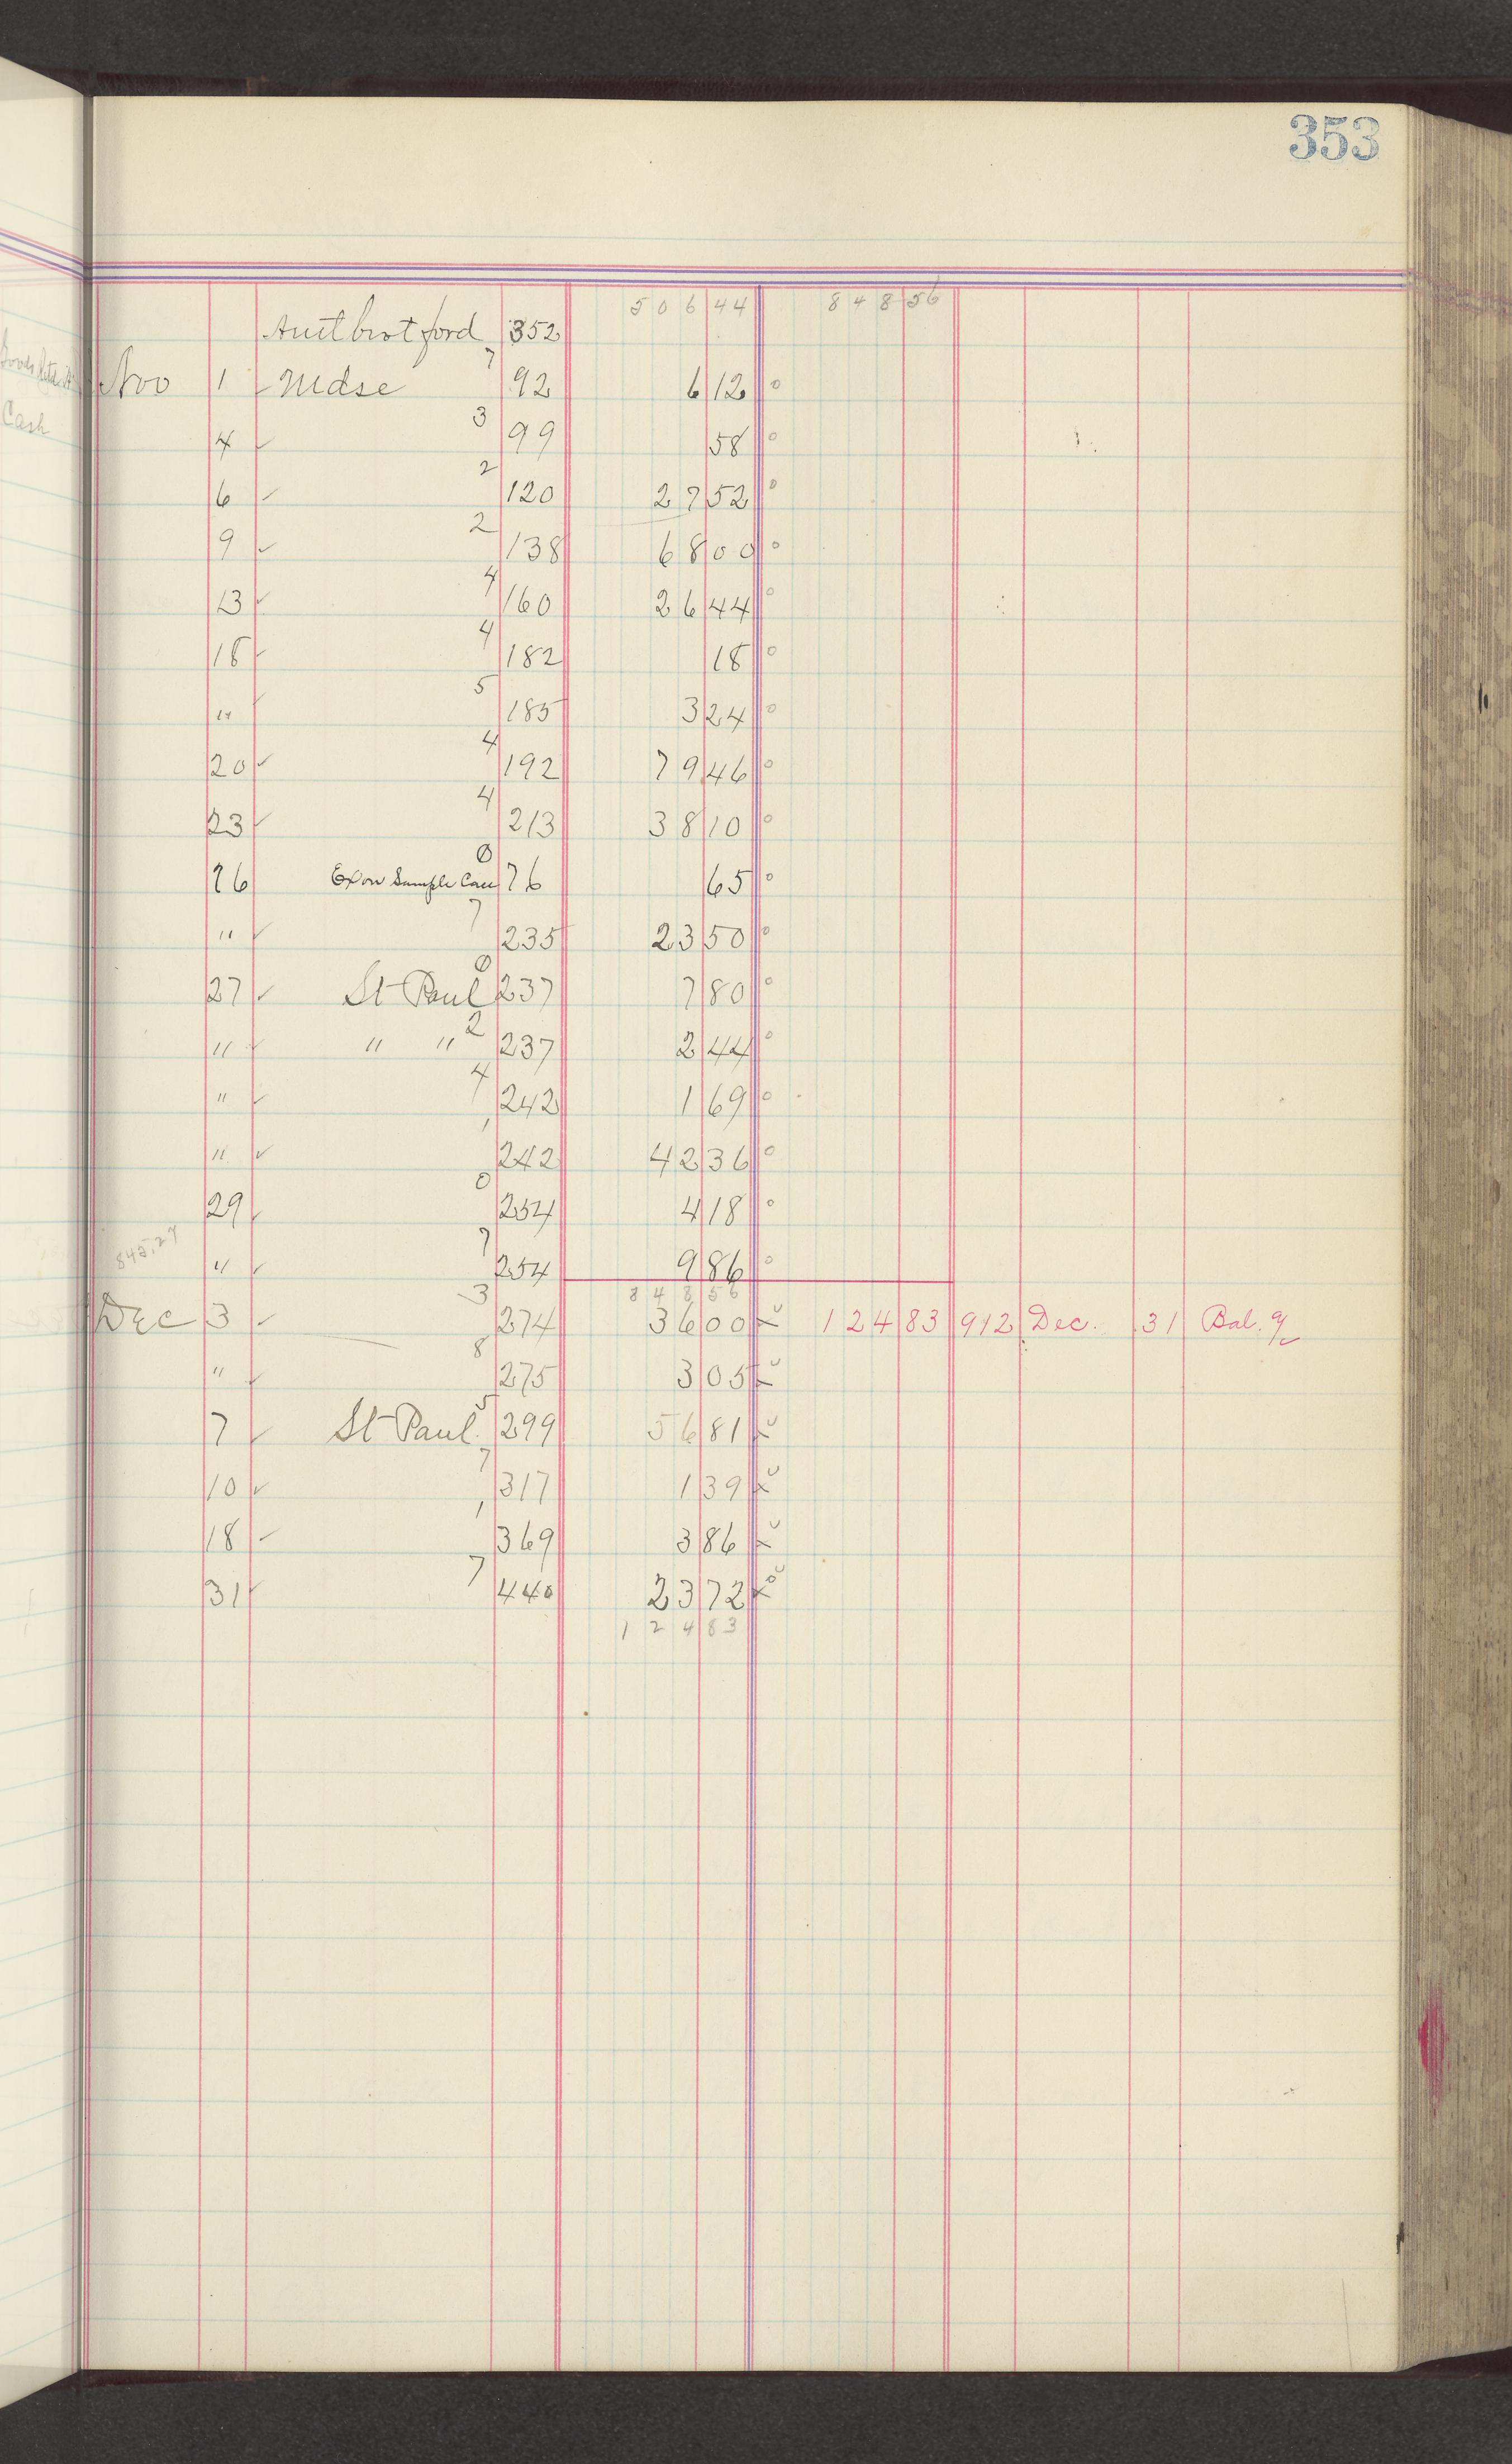 353
Goods Retd
Cash
506 44 848 56
Amt brot ford 352
7
Nov 1 Mdse 92 6 12
3
4 99 58
2
6 120 27 52
2
9 138 68 00
4
13 160 26 44
4
18 182 18
5
" 185 3 24
4
20 192 79 46
4
23 213 38 10
0
26 Exon Sample Case 76 65
7
" 235 23 50
0
27 St Paul 237 7 80
2
" " " 237 2 44
4
" 242 1 69
1
" 242 42 36
0
29 254 4 18
7
845.27 " 254 9 86
3 848 56
Dec 3 274 36 00 124 83 912 Dec. 31 Bal. %
8
" 275 3 05
5
7 St Paul. 299 56 81
7
10 317 1 39
1
18 369 3 86
7
31 440 23 72
124 83